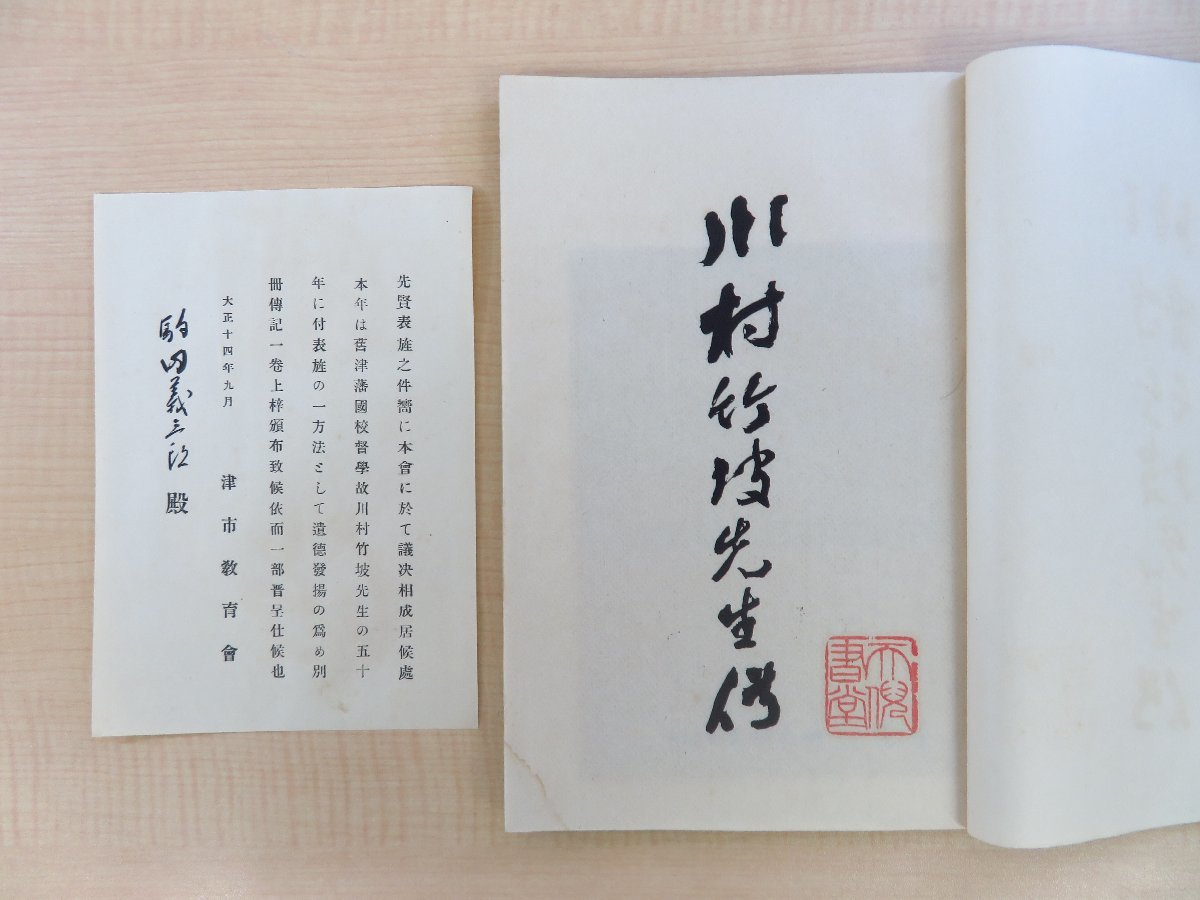 先賢表旌之件嚮に本會に於て議決相成居候處
本年は舊津藩國校督學故川村竹坡先生の五十
年に付表旌の一方法として遺德發揚の爲め別
冊傳記一卷上梓頒布致候依而一部晋呈仕候也
大正十四年九月
津市敎育會
駒田義三郎殿
川村竹坡先生傳
天倪
書堂